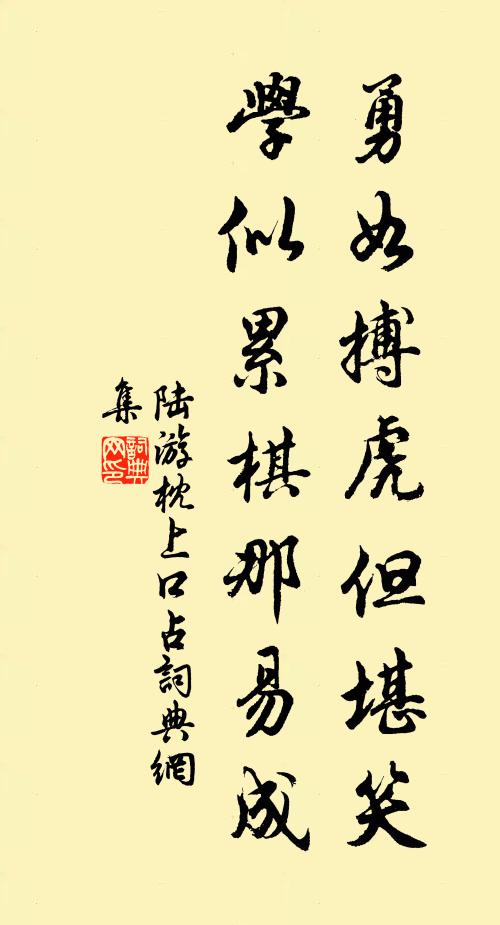 勇如搏虎但堪笑
學似累棋那易成
陆游枕上口占詞典網
集
詞典網印